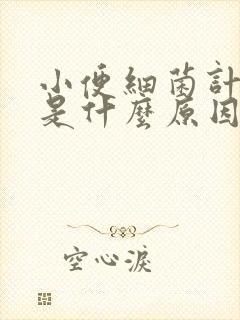 小便細菌計
是什麼原因
空心淚